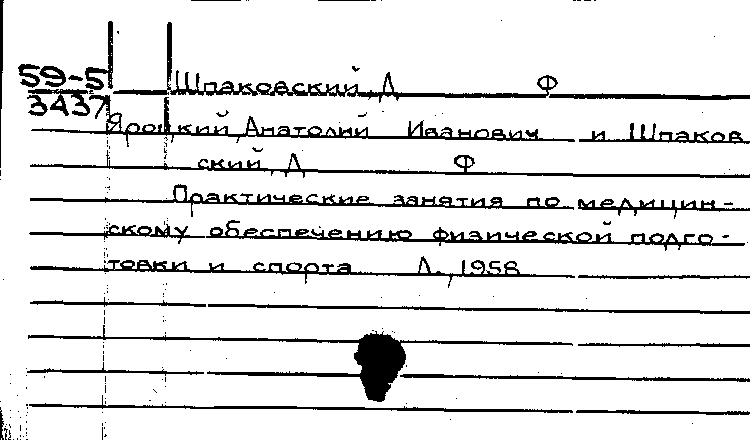 59-5 Шпаковский, Д Ф
3437
Яроцкий, Анатолий Иванович и Шпаков
ский, Д Ф
Практические занятия по медицин-
скому обеспечению физической подго-
товки и спорта Л., 1958